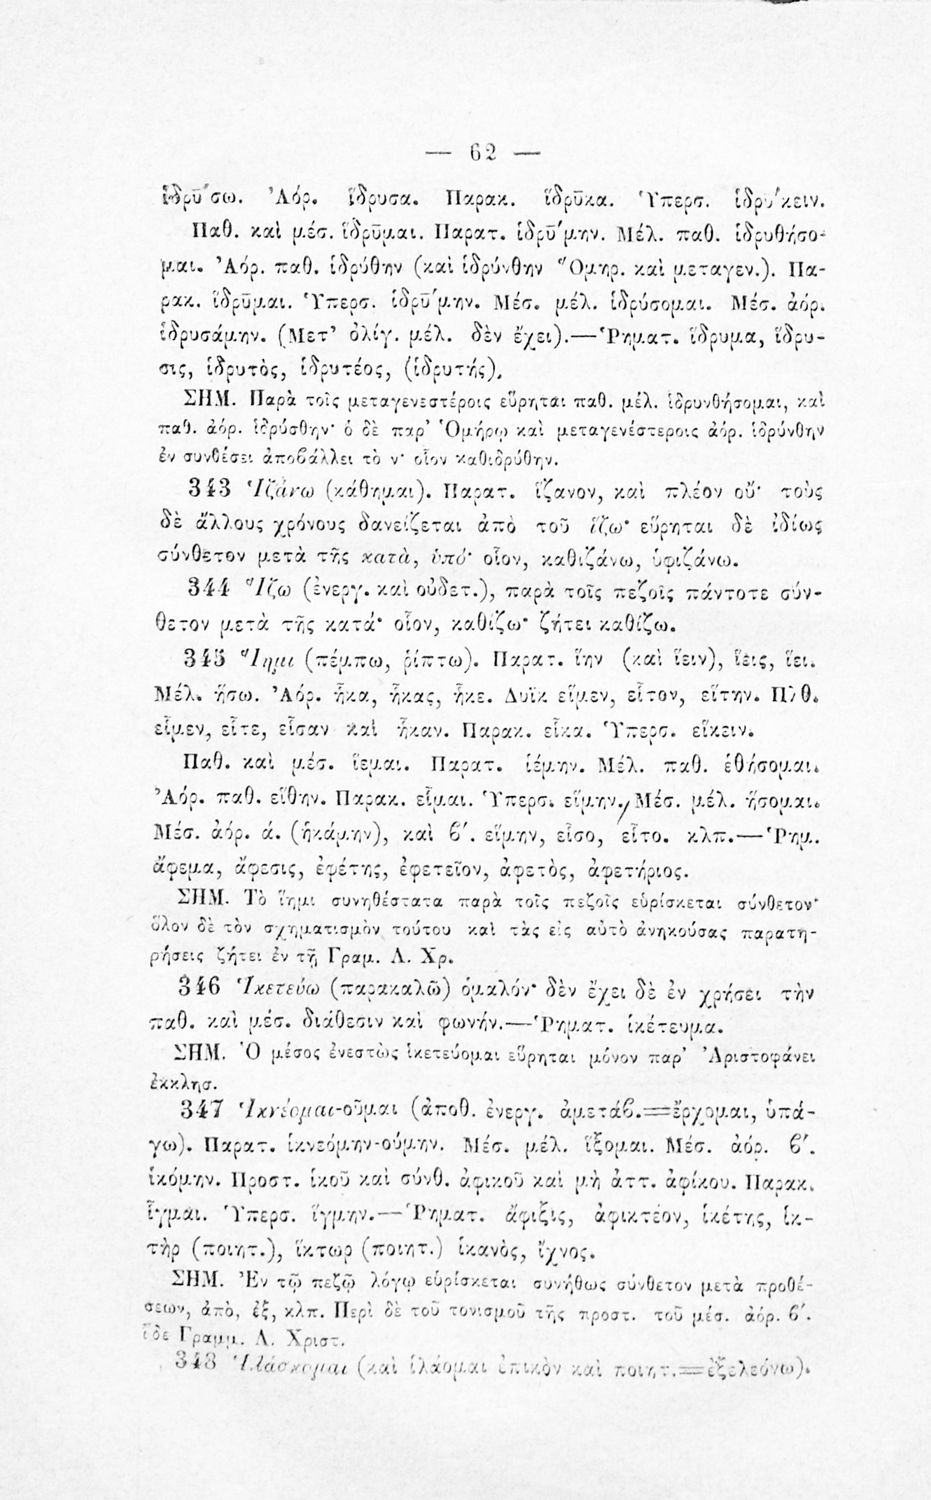 — 62 —
ἱδρύσω. Ἀόρ. ἵδρυσα. Παρακ. ἵδρῡκα. Ὑπερσ. ἱδρύκειν.
Παθ. καὶ μέσ. ἵδρῡμαι. Παρατ. ἱδρῡ́μην. Μέλ. παθ. ἱδρυθήσο-
μαι. Ἀόρ. παθ. ἱδρύθην (καὶ ἱδρύνθην Ὅμηρ. καὶ μεταγεν.). Πα-
ρακ. ἵδρῡμαι. Ὑπερσ. ἱδρῡ́μην. Μέσ. μέλ. ἱδρύσομαι. Μέσ. ἀόρ.
ἱδρυσάμην. (Μετ’ ὀλίγ. μέλ. δὲν ἔχει).—Ῥηματ. ἵδρυμα, ἵδρυ-
σις, ἱδρυτὸς, ἱδρυτέος, (ἱδρυτής).
ΣΗΜ. Παρὰ τοῖς μεταγενεστέροις εὕρηται παθ. μέλ. ἱδρυνθήσομαι, καὶ
παθ. ἀόρ. ἱδρύσθην· ὁ δὲ παρ’ Ὁμήρῳ καὶ μεταγενέστεροις ἀόρ. ἱδρύνθην
ἐν συνθέσει ἀποβάλλει τὸ ν· οἷον καθιδρύθην.
343 Ἱζάνω (κάθημαι). Παρατ. ἵζανον, καὶ πλέον οὔ· τοὺς
δὲ ἄλλους χρόνους δανείζεται ἀπὸ τοῦ ἵζω· εὕρηται δὲ ἰδίως
σύνθετον μετὰ τῆς κατὰ, ὑπό· οἷον, καθιζάνω, ὑφιζάνω.
344 Ἵζω (ἐνεργ. καὶ οὐδετ.), παρὰ τοῖς πεζοῖς πάντοτε σύν-
θετον μετὰ τῆς κατά· οἷον, καθίζω· ζήτει καθίζω.
345 Ἵημι (πέμπω, ῥίπτω). Παρατ. ἵην (καὶ ἵειν), ἵεις, ἵει.
Μέλ. ἥσω. Ἀόρ. ἧκα, ἧκας, ἧκε. Δυϊκ εἷμεν, εἷτον, εἵτην. Πλθ.
εἷμεν, εἷτε, εἷσαν καὶ ἧκαν. Παρακ. εἷκα. Ὑπερσ. εἵκειν.
Παθ. καὶ μέσ. ἵεμαι. Παρατ. ἱέμην. Μέλ. παθ. ἑθήσομαι.
Ἀόρ. παθ. εἵθην. Παρακ. εἷμαι. Ὑπερσ. εἵμην. Μέσ. μέλ. ἥσομαι.
Μέσ. ἀόρ. ά. (ἡκάμην), καὶ β΄. εἵμην, εἷσο, εἷτο. κλπ.—Ῥημ.
ἄφεμα, ἄφεσις, ἐφέτης, ἐφετεῖον, ἀφετὸς, ἀφετήριος.
ΣΗΜ. Τὸ ἵημι συνηθέστατα παρὰ τοῖς πεζοῖς εὑρίσκεται σύνθετον·
ὅλον δὲ τὸν σχηματισμὸν τούτου καὶ τὰς εἰς αὐτὸ ἀνηκούσας παρατη-
ρήσεις ζήτει ἐν τῇ Γραμ. Λ. Χρ.
346 Ἱκετεύω (παρακαλῶ) ὁμαλόν· δὲν ἔχει δὲ ἐν χρήσει τὴν
παθ. καὶ μέσ. διάθεσιν καὶ φωνήν.—Ῥηματ. ἱκέτευμα.
ΣΗΜ. Ὁ μέσος ἐνεστὼς ἱκετεύομαι εὕρηται μόνον παρ’ Ἀριστοφάνει
ἐκκλησ.
347 Ἱκνέομαι-οῦμαι (ἀποθ. ἐνεργ. ἀμετάβ.=ἔρχομαι, ὑπά-
γω). Παρατ. ἱκνεόμην-ούμην. Μέσ. μέλ. ἵξομαι. Μέσ. ἀόρ. β΄.
ἱκόμην. Προστ. ἱκοῦ καὶ σύνθ. ἀφικοῦ καὶ μὴ ἀττ. ἀφίκου. Παρακ.
ἷγμαι. Ὑπερσ. ἵγμην.—Ῥηματ. ἄφιξις, ἀφικτέον, ἱκέτης, ἱκ-
τὴρ (ποιητ.), ἵκτωρ (ποιητ.) ἱκανὸς, ἴχνος.
ΣΗΜ. Ἐν τῷ πεζῷ λόγῳ εὑρίσκεται συνήθως σύνθετον μετὰ προθέ-
σεων, ἀπὸ, ἐξ, κλπ. Περὶ δὲ τοῦ τονισμοῦ τῆς προστ. τοῦ μέσ. ἀόρ. β΄.
ἴδε Γραμμ. Λ. Χριστ.
348 Ἱλάσκομαι (καὶ ἱλάομαι ἐπικὸν καὶ ποιητ.=ἐξελεόνω).